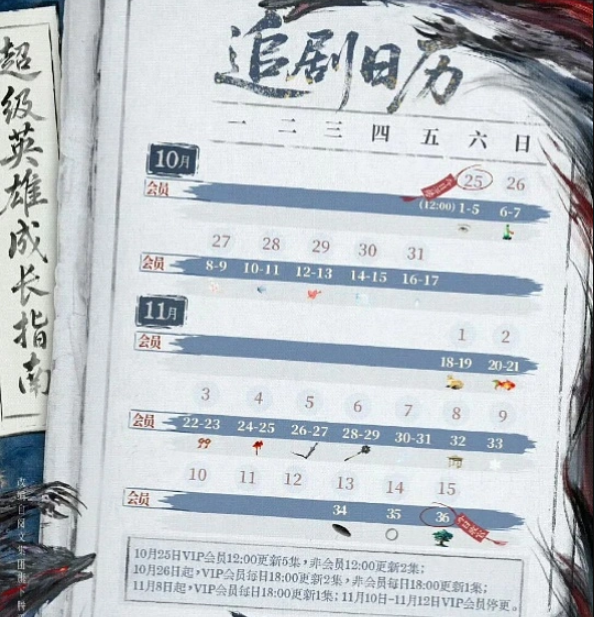 追剧日历
超级英雄成长指南
一 二 三 四 五 六 日
10月
25 26
会员 (12:00) 1-5 6-7
27 28 29 30 31
会员 8-9 10-11 12-13 14-15 16-17
11月
1 2
会员 18-19 20-21
3 4 5 6 7 8 9
会员 22-23 24-25 26-27 28-29 30-31 32 33
10 11 12 13 14 15
会员 34 35 36
10月25日VIP会员12:00更新5集，非会员12:00更新2集；
10月26日起，VIP会员每日18:00更新2集，非会员每日18:00更新1集；
11月8日起，VIP会员每日18:00更新1集；11月10日-11月12日VIP会员停更。